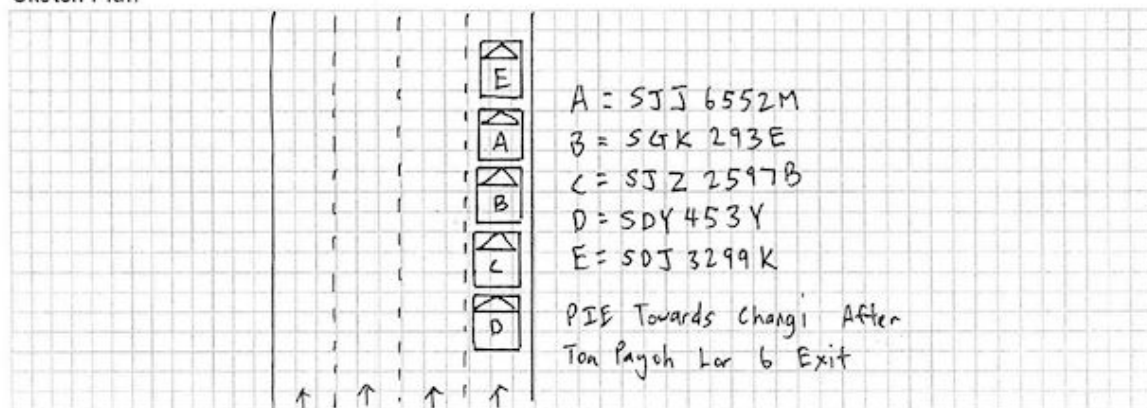 E
A
B
C
D
A = SJJ 6552M
B = SGK 293E
C = SJZ 2597B
D = SDY 453Y
E = SDJ 3299K
PIE Towards Changi After
Toa Payoh Lor 6 Exit